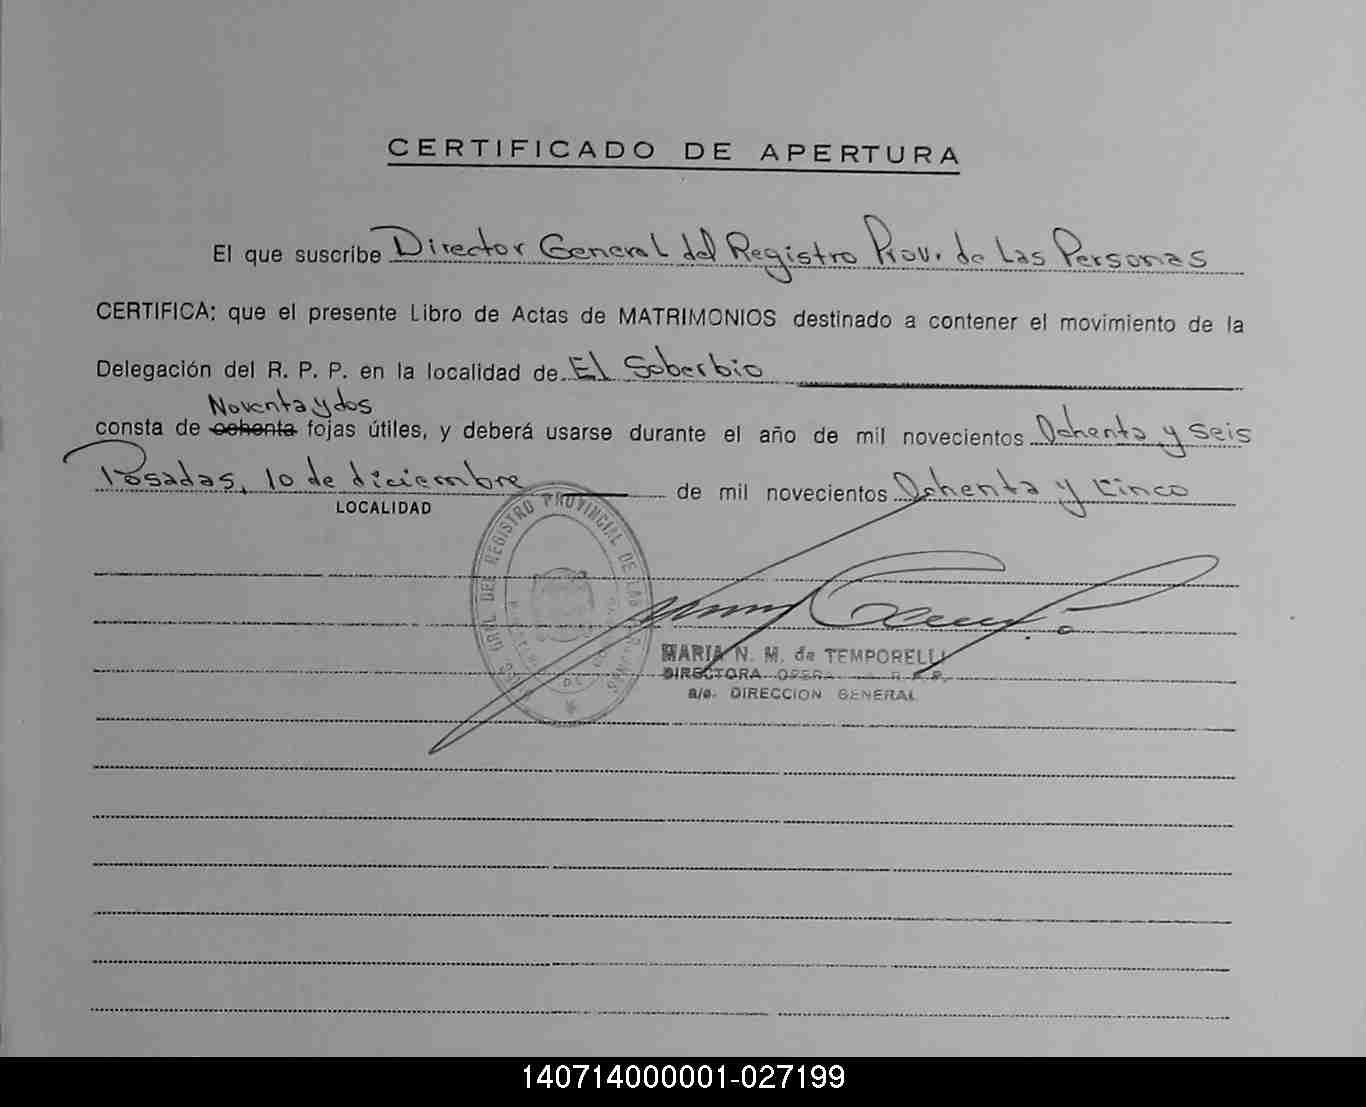 CERTIFICADO DE APERTURA
El que suscribe Director General del Registro Prov. de Las Personas
CERTIFICA: que el presente Libro de Actas de MATRIMONIOS destinado a contener el movimiento de la
Delegación del R. P. P. en la localidad de El Soberbio
Noventa y dos
consta de ochenta fojas útiles, y deberá usarse durante el año de mil novecientos Ochenta y seis
Posadas, 10 de diciembre de mil novecientos Ochenta y cinco
LOCALIDAD
GRAL DEL REGISTRO PROVINCIAL DE LAS PERSONAS
MARIA N. M. de TEMPORELLI
DIRECTORA
a/c. DIRECCION GENERAL
140714000001-027199